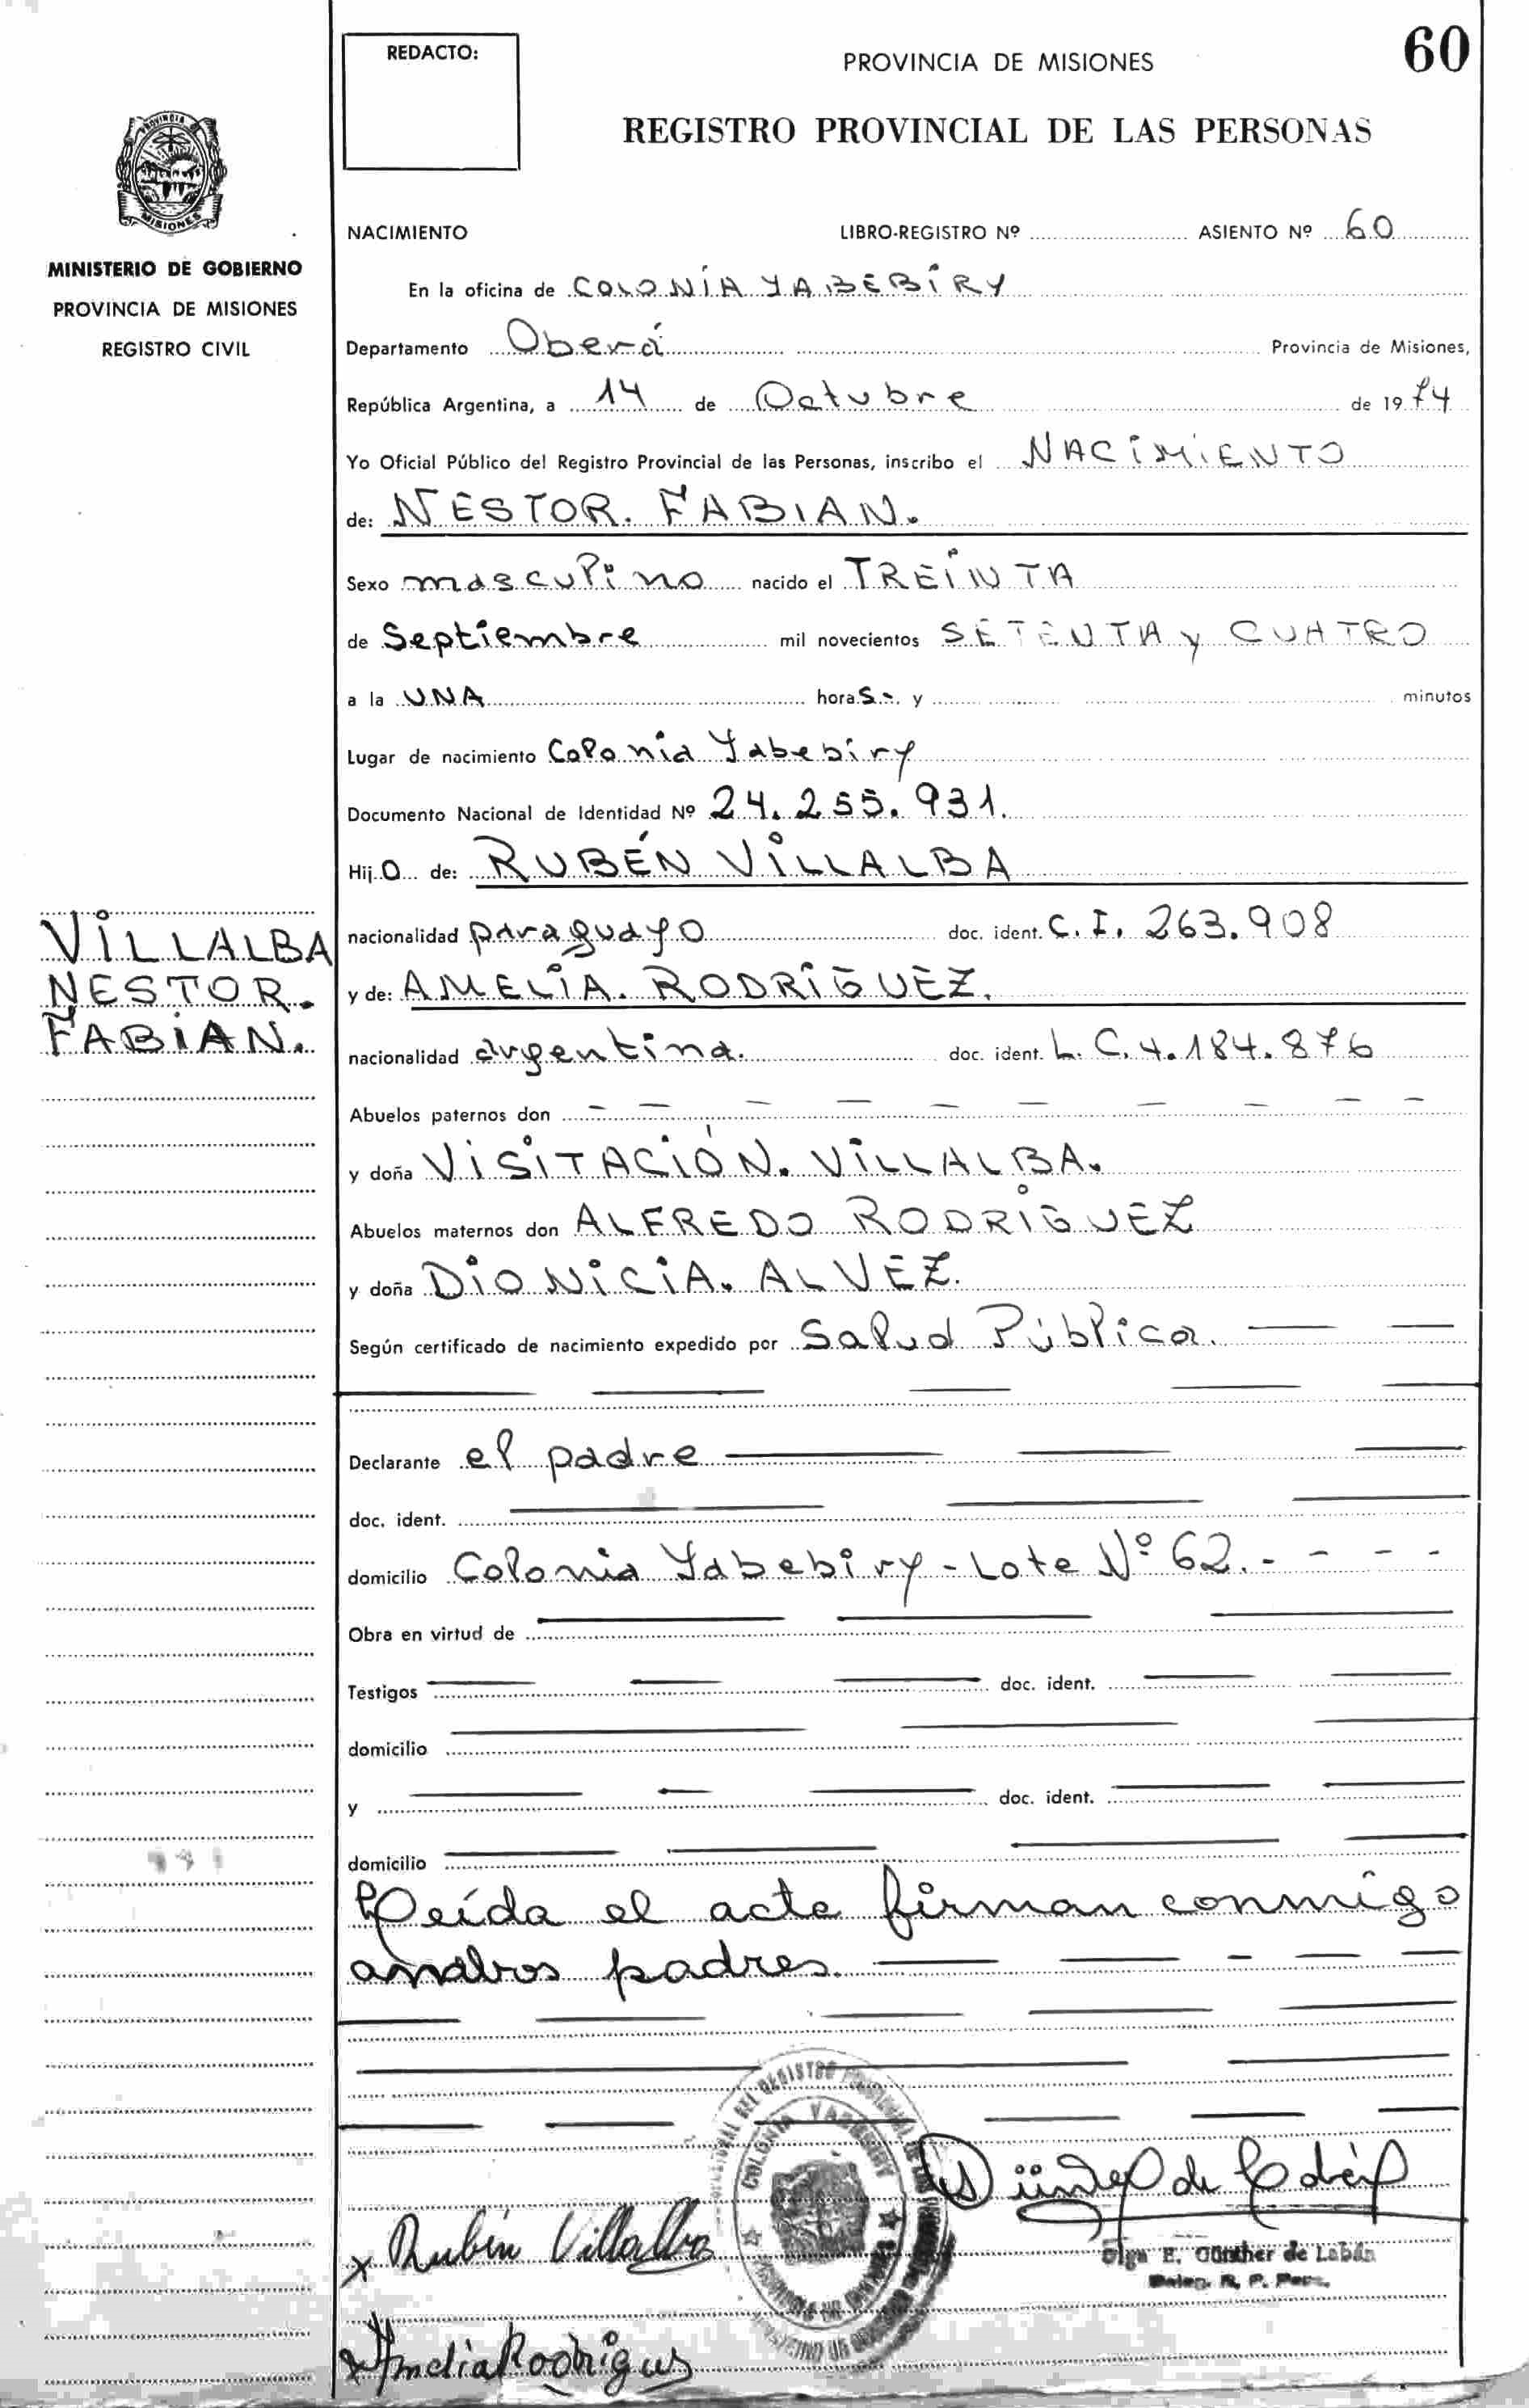 60
REDACTO:
PROVINCIA DE MISIONES
REGISTRO PROVINCIAL DE LAS PERSONAS
MISIONES
MINISTERIO DE GOBIERNO
PROVINCIA DE MISIONES
REGISTRO CIVIL
NACIMIENTO LIBRO-REGISTRO Nº ASIENTO Nº 60
En la oficina de COLONÍA YABEBIRY
Departamento Oberá Provincia de Misiones,
República Argentina, a 14 de Octubre de 1974
Yo Oficial Público del Registro Provincial de las Personas, inscribo el NACIMIENTO
de: NESTOR. FABIAN.
Sexo masculino nacido el TREINTA
de Septiembre mil novecientos SETENTA y CUATRO
a la UNA horas.-. y minutos
Lugar de nacimiento Colonia Yabebiry
Documento Nacional de Identidad Nº 24.255.931.
Hijo de: RUBÉN VILLALBA
VILLALBA
NESTOR.
FABIAN.
nacionalidad paraguayo doc. ident. C.I. 263.908
y de: AMELIA. RODRIGUEZ.
nacionalidad argentina. doc. ident. L.C. 4.184.876
Abuelos paternos don - - - - - - - - - -
y doña VISITACIÓN. VILLALBA.
Abuelos maternos don ALFREDO RODRIGUEZ
y doña DIONICIA. ALVEZ.
Según certificado de nacimiento expedido por Salud Pública.
Declarante el padre
doc. ident.
domicilio Colonia Yabebiry - Lote Nº 62.- - - -
Obra en virtud de
Testigos doc. ident.
domicilio
y doc. ident.
domicilio
Leída el acta firman conmigo
ambos padres.
COLONIA YABEBIRY
x Rubén Villalba
Olga E. Günther de Labán
Deleg. R. P. Pers.
x Amelia Rodrigues